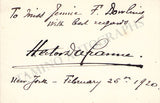 To Miss Jennie F. Dowling
with best regards
Hector Dufranne
New York - February 25th 1920